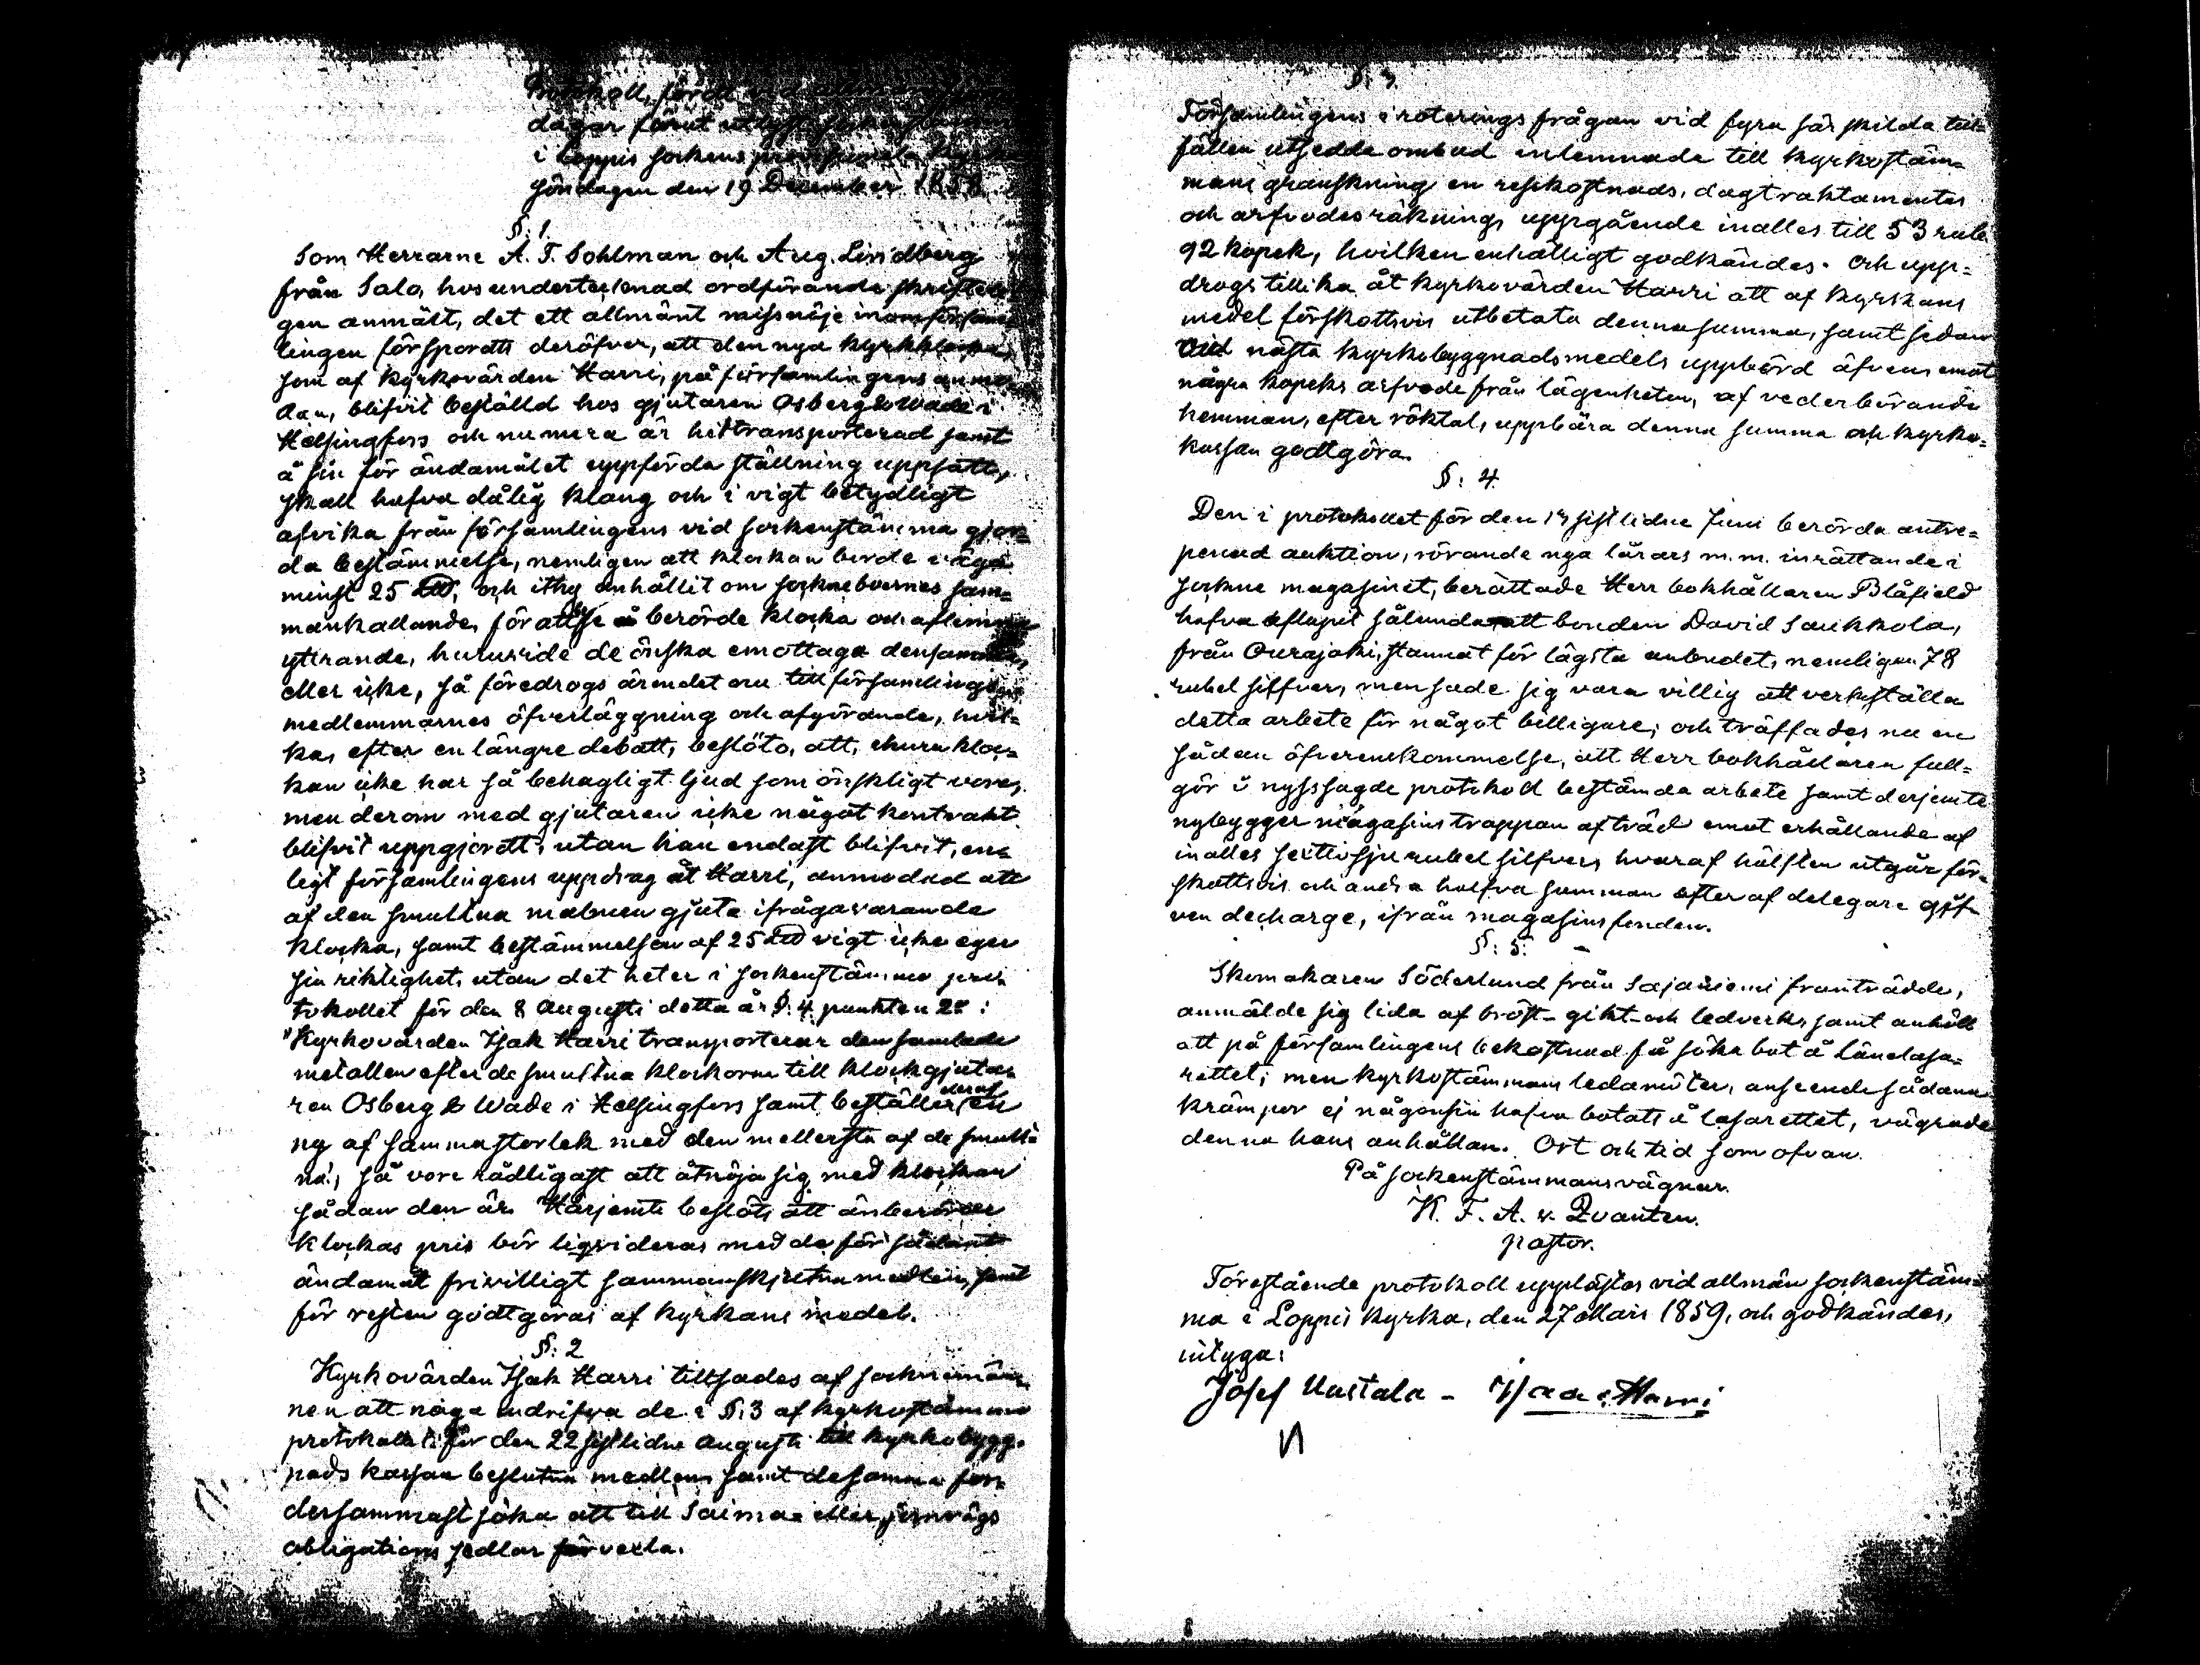 Protokoll, fördt vid allmän
dagar förut utlyst sockenstämma
i Loppis sockens provisionela kyrka
söndagen den 19 December 1858.
§: 1.
Som Herrarne A. F. Sohlman och Aug. Lindberg
från Salo, hos undertecknad ordförande skriftli-
gen anmält, det ett allmänt missnöje inom församl
lingen försports deröfver, att den nya kyrkklockan
som af kyrkovärden Harri, på församlingens anmo-
dan, blifvit beställd hos gjutaren Osberg & Wade i
Helsingfors och numera är hittransporterad samt
å sin för ändamålet uppförda ställning uppsatt,
skall hafva dålig klang och i vigt betydligt
afvika från församlingens vid sockenstämma gjor-
da bestämmelse, nemligen att klockan borde i äga
minst 25 L℔, och ithy anhållit om socknebornes sam-
mankallande, för att se berörde klocka och aflemna
yttrande, huruvide de önska emottaga densamma,
eller icke, så föredrogs ärendet nu till församlingens
medlemmarnes öfverläggning och afgörande, hvil-
ka, efter en längre debatt, beslöto, att, ehuru kloc-
kan icke har så behagligt ljud som önskligt vore,
men derom med gjutaren icke något kontrakt
blifvit uppgjordt, utan han endast blifvit, en-
ligt församlingens uppdrag åt Harri, anmodad att
af den smultna malmen gjuta ifrågavarande
klocka, samt bestämmelsen af 25 L℔ vigt icke eger
sin riktighet, utan det heter i sockenstämmo pro-
tokollet för den 8 Augusti detta år §: 4 punkten 2º:
"Kyrkovärden Isak Harri transporterar den samlade
metallen efter de smultna klockorna till klockgjuta-
ren Osberg & Wade i Helsingfors samt beställer deraf en
ny af samma storlek med den mellersta af de smult-
na", så vore rådligast att åtnöja sig med klockan
sådan den är. Härjemte beslöts att änberörde
klockas pris bör liqvideras med de för sådant
ändamål frivilligt sammanskjutna medlen, samt
för resten godtgöras af kyrkans medel.
§: 2
Kyrkovärden Isak Harri tillsades af sockenmän-
nen att noga indrifva de i §: 3 af kyrkostämmo
protokollet för den 22 sistlidne Augusti till kyrkobygg-
nads kassan beslutna medlen samt desamma för-
dersammast söka att till Saima- eller jernvägs
obligations sedlar förvexla.
§: 3.
Församlingens i roterings frågan vid fyra särskilda till-
fällen utsedde ombud inlemnade till kyrkostäm-
mans granskning en resekostnads, dagtraktamentes
och arfvodesräkning, uppgående inalles till 53 rub.
92 kopek, hvilken enhälligt godkändes. Och upp-
drogs tillika åt kyrkovärden Harri att af kyrkans
medel förskottsvis utbetala denna summa, samt sedan
vid nästa kyrkobyggnadsmedels uppbörd äfvens emot
några kopeks arfvode från lägenheten, af vederbörande
hemman, efter röktal, uppbära denna summa och kyrko-
kassan godtgöra.
§: 4.
Den i protokollet för den 13 sistlidne Juni berörda entre-
penad auktion, rörande nya lårars m.m. inrättande i
sockne magasinet, berättade Herr bokhållaren Blåfield
hafva aflupit sålunda att bonden David Saukkola,
från Ourajoki, stannat för lägsta anbudet, nemligen 78
rubel silfver, men sade sig vara villig att verkställa
detta arbete för något billigare; och träffades nu en
sådan öfverenskommelse, att Herr bokhållaren full-
gör i nyssagde protokoll bestämda arbete samt derjemte
nybygger magasins trappan af träd emot erhållande af
inalles sextiosju rubel silfver, hvaraf hälften utgår för-
skottsvis och andra halfva summan efter af delegare gif-
ven decharge, ifrån magasins fonden.
§: 5.
Skomakaren Söderlund från Sajaniemi framträdde,
anmälde sig lida af bröst- gikt- och ledverk, samt anhöll
att på församlingens bekostnad få söka bot å Länelasa-
rettet; men kyrkostämmans ledamöter, anseende sådana
krämpor ej någonsin hafva botats å lasarettet, vägrade
denna hans anhållan. Ort och tid som ofvan.
På sockenstämmans vägnar
K. F. A. v. Qvanten.
pastor.
Förestående protokoll upplästes vid allmän sockenstäm-
ma i Loppis kyrka, den 27 Mars 1859, och godkändes,
intyga:
Josef Uustala - Isaac Harri